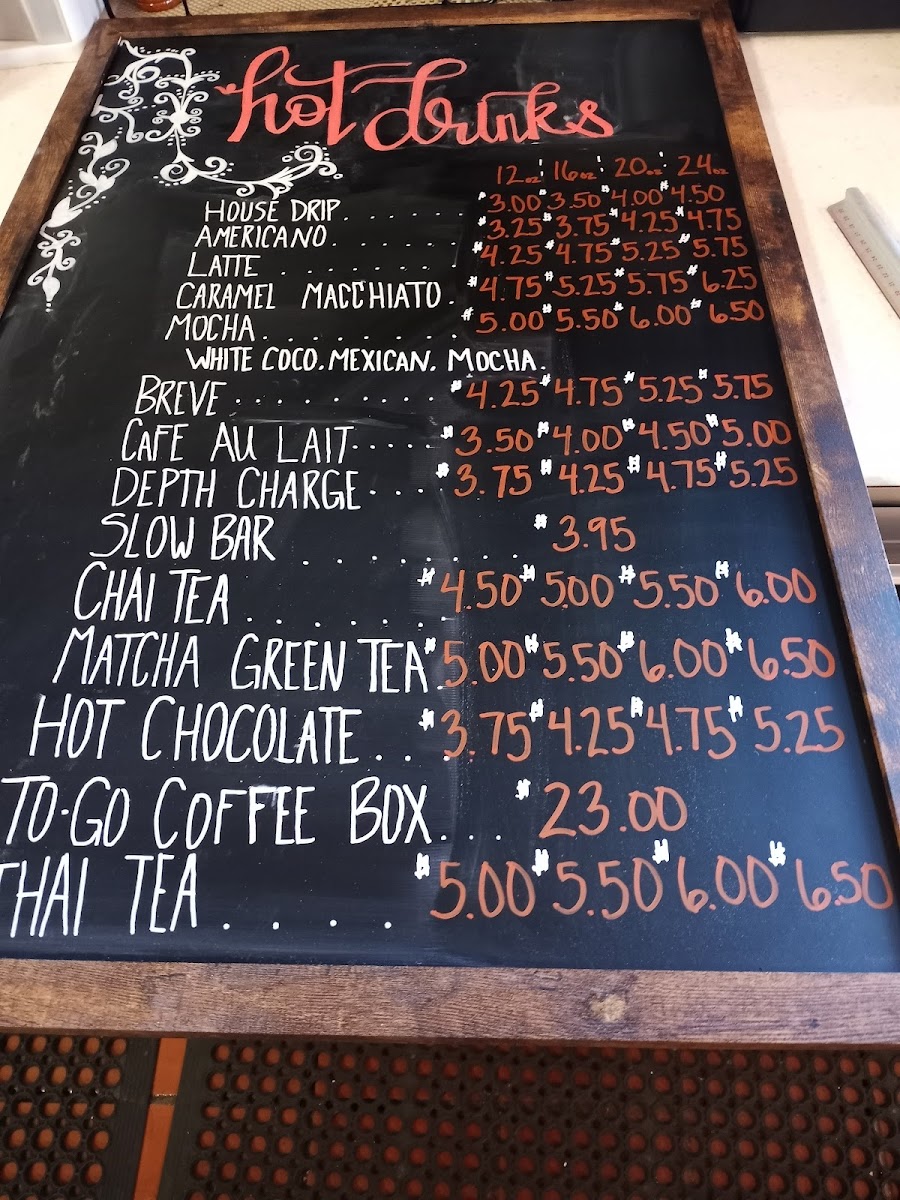 hot drinks
12oz 16oz 20oz 24oz
HOUSE DRIP. . . . . . . $3.00 $3.50 $4.00 $4.50
AMERICANO. . . . . . . $3.25 $3.75 $4.25 $4.75
LATTE . . . . . . . . $4.25 $4.75 $5.25 $5.75
CARAMEL MACCHIATO . $4.75 $5.25 $5.75 $6.25
MOCHA. . . . . . . . . $5.00 $5.50 $6.00 $6.50
WHITE COCO. MEXICAN. MOCHA.
BREVE . . . . . . . . . $4.25 $4.75 $5.25 $5.75
CAFE AU LAIT . . . . . $3.50 $4.00 $4.50 $5.00
DEPTH CHARGE . . . . $3.75 $4.25 $4.75 $5.25
SLOW BAR . . . . . . . $3.95
CHAI TEA . . . . . . . $4.50 $5.00 $5.50 $6.00
MATCHA GREEN TEA. $5.00 $5.50 $6.00 $6.50
HOT CHOCOLATE . . . $3.75 $4.25 $4.75 $5.25
TO-GO COFFEE BOX. . . $23.00
THAI TEA . . . . . $5.00 $5.50 $6.00 $6.50